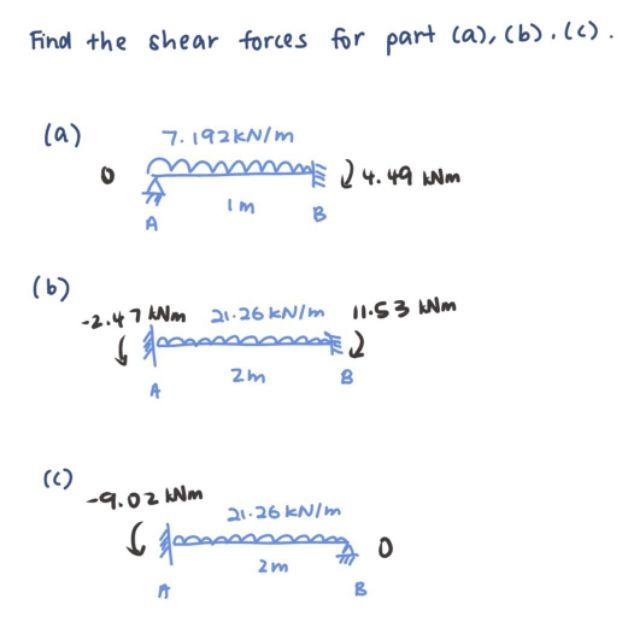 Find the shear forces for part (a), (b), (c).
(a)
7.192kN/m
0
4.49 kNm
1m
A
B
(b)
-2.47 kNm 21.26 kN/m 11.53 kNm
2m
A
B
(c)
-9.02 kNm
21.26 kN/m
0
2m
A
B